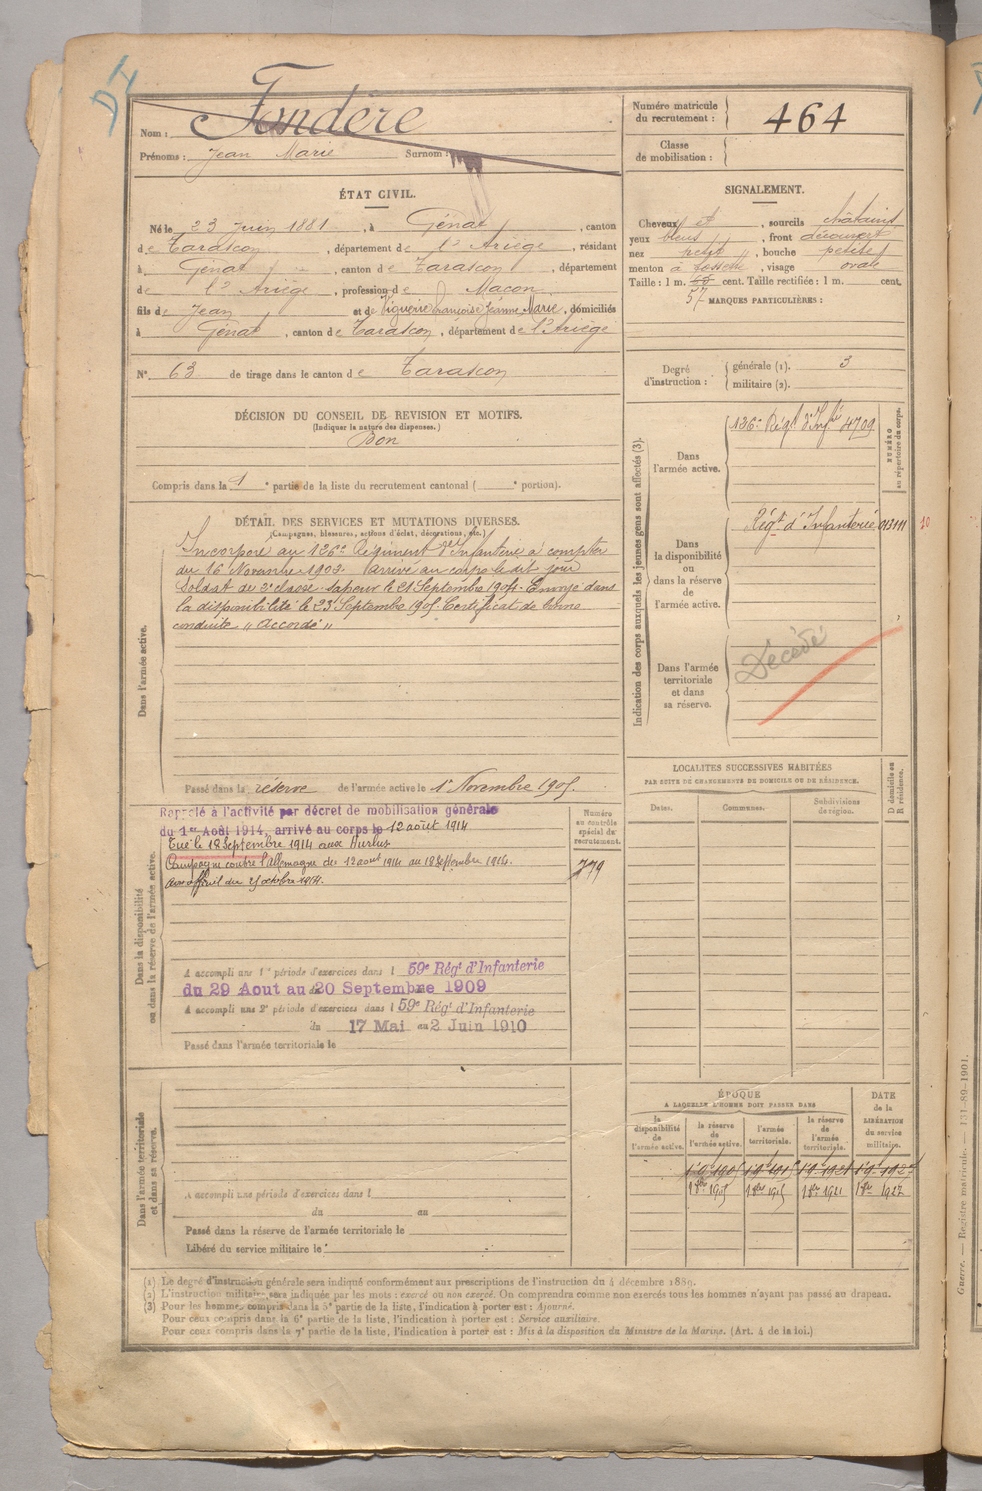 DI
Nom : Fondère
Prénoms : Jean Marie Surnom :
Numéro matricule du recrutement : 464
Classe de mobilisation :
ÉTAT CIVIL.
Né le 23 Juin 1881, à Génat, canton
de Tarascon, département de l'Ariège, résidant
à Génat, canton de Tarascon, département
de l'Ariège, profession de Maçon,
fils de Jean et de Piguerie Françoise Jeanne Marie, domiciliés
à Génat, canton de Tarascon, département de l'Ariège
N° 63 de tirage dans le canton de Tarascon
SIGNALEMENT.
Cheveux et, sourcils châtains
yeux bleus, front découvert
nez petit, bouche petite
menton à fossette, visage ovale
Taille : 1 m. cent. Taille rectifiée : 1 m. cent.
57 MARQUES PARTICULIÈRES :
Degré d'instruction :
générale (1). 3
militaire (2).
DÉCISION DU CONSEIL DE REVISION ET MOTIFS.
(Indiquer la nature des dispenses.)
Bon
Compris dans la 1e partie de la liste du recrutement cantonal ( e portion).
DÉTAIL DES SERVICES ET MUTATIONS DIVERSES.
(Campagnes, blessures, actions d'éclat, décorations, etc.)
Dans l'armée active.
Incorporé au 126e Régiment d'Infanterie à compter
du 16 Novembre 1902. Arrivé au corps le dit jour
Soldat de 2e classe. sapeur le 21 Septembre 1904. Envoyé dans
la disponibilité le 23 Septembre 1905 Certificat de bonne
conduite "Accordé"
Passé dans la réserve de l'armée active le 1er Novembre 1905.
Indication des corps auxquels les jeunes gens sont affectés (3).
NUMÉRO au répertoire du corps.
Dans l'armée active.
126e Régt d'Infie 4709
Dans la disponibilité ou dans la réserve de l'armée active.
Régt d'Infanterie 013111 10
Dans l'armée territoriale et dans sa réserve.
Décédé
Dans la disponibilité ou dans la réserve de l'armée active.
Rappelé à l'activité par décret de mobilisation générale
du 1er Août 1914, arrivé au corps le 12 août 1914
Tué le 18 Septembre 1914 aux Hurlus
Campagne contre l'Allemagne du 12 aout 1914 au 18 Septembre 1914.
Numéro au contrôle spécial du recrutement.
779
A accompli une 1re période d'exercices dans l 59e Régt d'Infanterie
du 29 Aout au 20 Septembre 1909
A accompli une 2e période d'exercices dans l 59e Régt d'Infanterie
du 17 Mai au 2 Juin 1910
Passé dans l'armée territoriale le
LOCALITÉS SUCCESSIVES HABITÉES
PAR SUITE DE CHANGEMENTS DE DOMICILE OU DE RÉSIDENCE.
Dates. Communes. Subdivisions de région. D domicile ou R résidence.
Dans l'armée territoriale et dans sa réserve.
A accompli une période d'exercices dans l
du au
Passé dans la réserve de l'armée territoriale le
Libéré du service militaire le
ÉPOQUE
A LAQUELLE L'HOMME DOIT PASSER DANS
DATE de la LIBÉRATION du service militaire.
la disponibilité de l'armée active.
la réserve de l'armée active.
l'armée territoriale.
la réserve de l'armée territoriale.
1 9bre 1905 1 9bre 1915 1 9bre 1921 1 9bre 1927
(1) Le degré d'instruction générale sera indiqué conformément aux prescriptions de l'instruction du 4 décembre 1889.
(2) L'instruction militaire sera indiquée par les mots : exercé ou non exercé. On comprendra comme non exercés tous les hommes n'ayant pas passé au drapeau.
(3) Pour les hommes compris dans la 5e partie de la liste, l'indication à porter est : Ajourné.
Pour ceux compris dans la 6e partie de la liste, l'indication à porter est : Service auxiliaire.
Pour ceux compris dans la 7e partie de la liste, l'indication à porter est : Mis à la disposition du Ministre de la Marine. (Art. 4 de la loi.)
Guerre. — Registre matricule. — 131-89-1901.